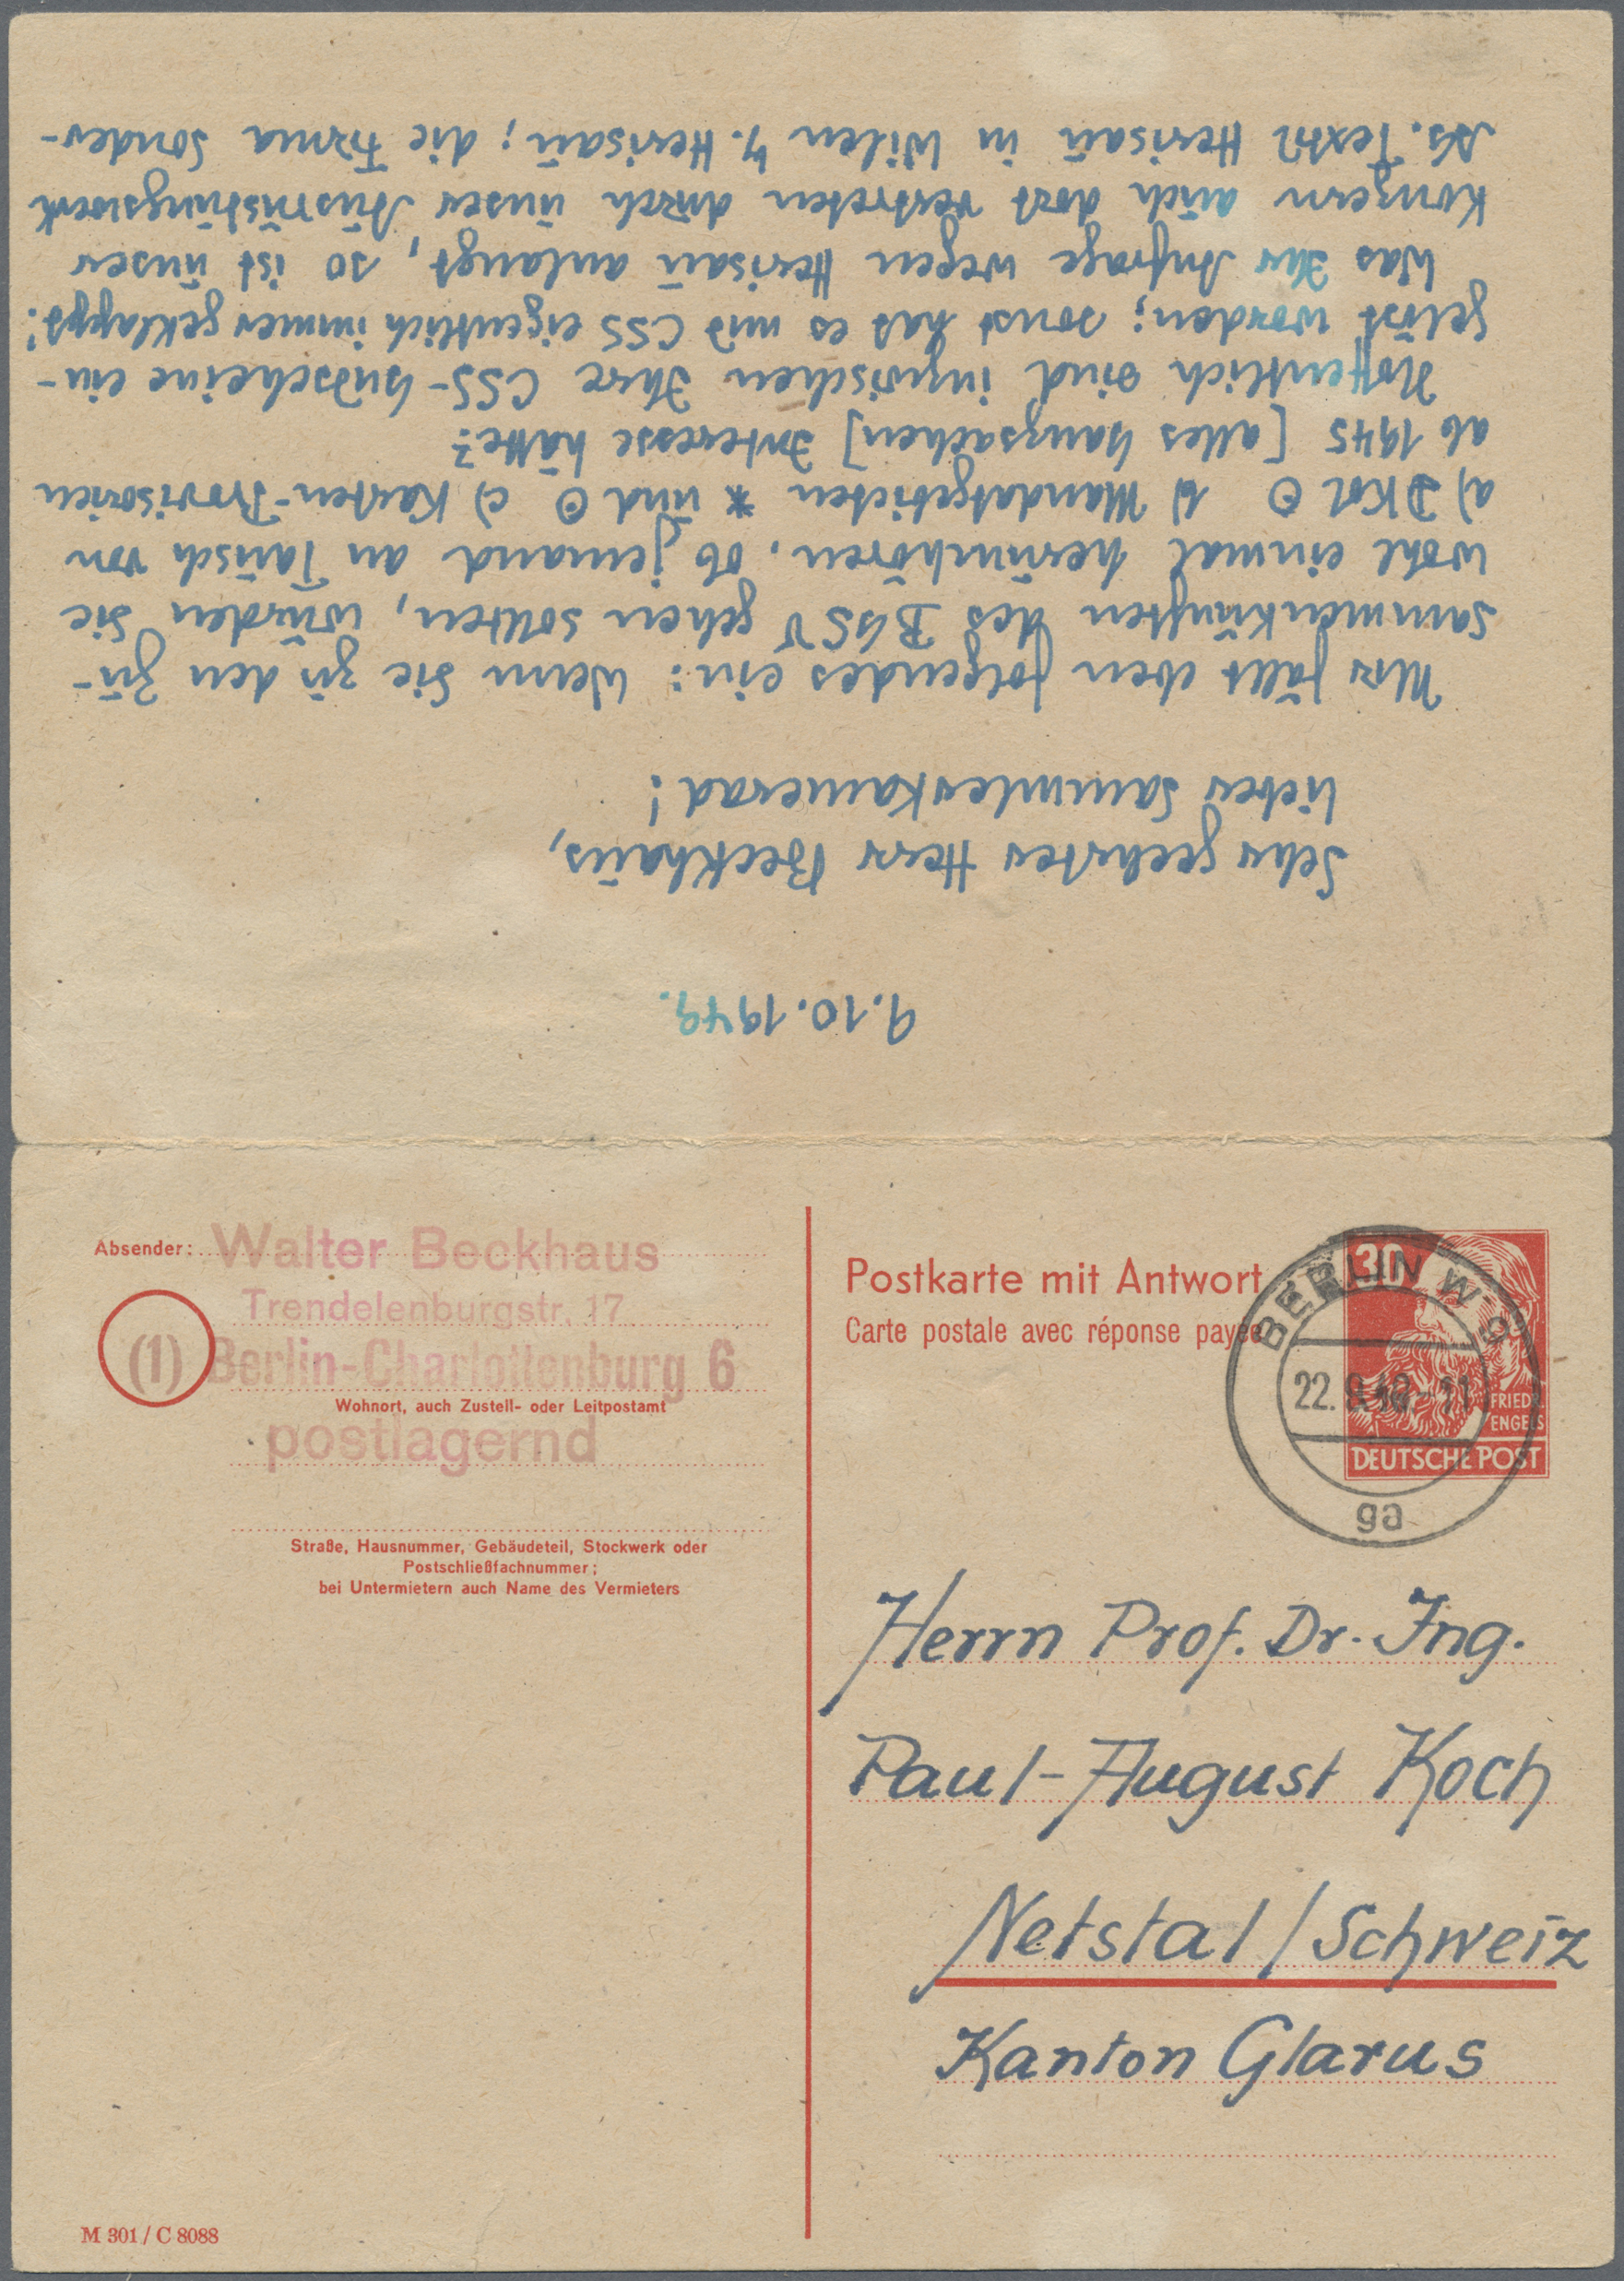 9.10.1949.
Sehr geehrter Herr Beckhaus,
lieber Sammlerkamerad!
Mir fällt eben folgendes ein: Wenn Sie zu den Zu-
sammenkünften des BGSV gehen sollten, würden Sie
wohl einmal herumhören, ob jemand an Tausch von
a) DKol ⊙ b) Mandatgebieten * und ⊙ c) Karten-Provisorien
ab 1945 [alles Ganzsachen] Interesse hätte?
Hoffentlich sind inzwischen Ihre CSS-Gutscheine ein-
gelöst worden; sonst hat es mit CSS eigentlich immer geklappt!
Was Ihr Anfrage wegen Herisau anlangt, so ist unser
Konzern auch dort vertreten durch unser Ausrüstungswerk
AG. Textil Herisau in Wilen b. Herisau; die Firma Sonder-
Absender: Walter Beckhaus
Trendelenburgstr. 17
(1) Berlin-Charlottenburg 6
Wohnort, auch Zustell- oder Leitpostamt
postlagernd
Straße, Hausnummer, Gebäudeteil, Stockwerk oder
Postschließfachnummer;
bei Untermietern auch Name des Vermieters
M 301 / C 8088
Postkarte mit Antwort
Carte postale avec réponse payée
30
FRIEDR.
ENGELS
DEUTSCHE POST
BERLIN W
22.9.49-11
ga
Herrn Prof. Dr. Ing.
Paul-August Koch
Netstal / Schweiz
Kanton Glarus